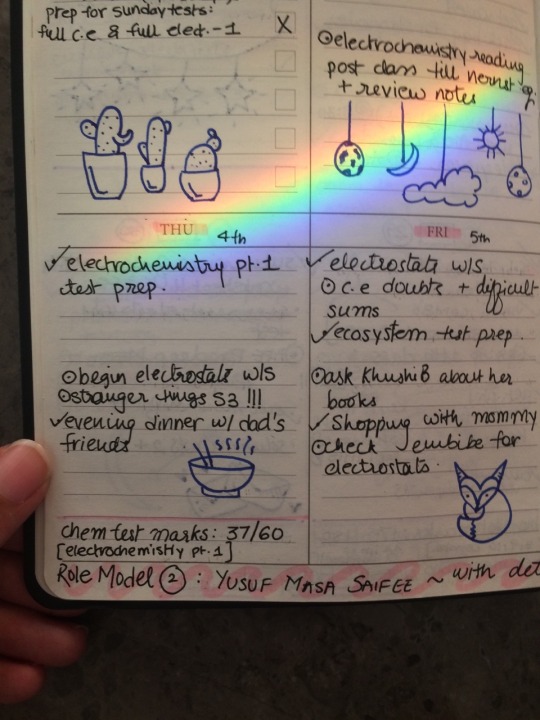 prep for sunday tests:
full c.e & full elect.-1
X
⊙electrochemistry reading
post class till nernst eq.
+ review notes
THU 4th
✓electrochemistry pt.1
test prep.
⊙begin electrostats w/s
⊙stranger things S3 !!!
✓evening dinner w/ dad's
friends
chem test marks: 37/60
[electrochemistry pt.1]
FRI 5th
✓electrostats w/s
⊙c.e doubts + difficult
sums
✓ecosystem test prep.
⊙ask Khushi B about her
books
✓Shopping with mommy
⊙check embibe for
electrostats.
Role Model ② : YUSUF MASA SAIFEE ~ with